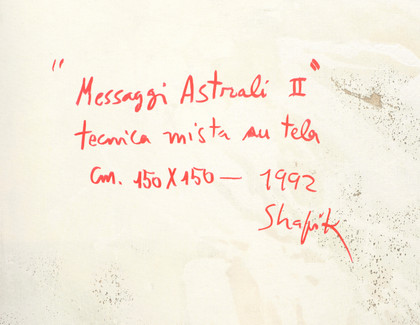 "Messaggi Astrali II"
tecnica mista su tela
cm. 150X150 — 1992